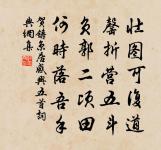 壮圖可復道
磬折營五斗
負郭二頃田
何時落吾手
賀鑄京居感興五首詞
典網集